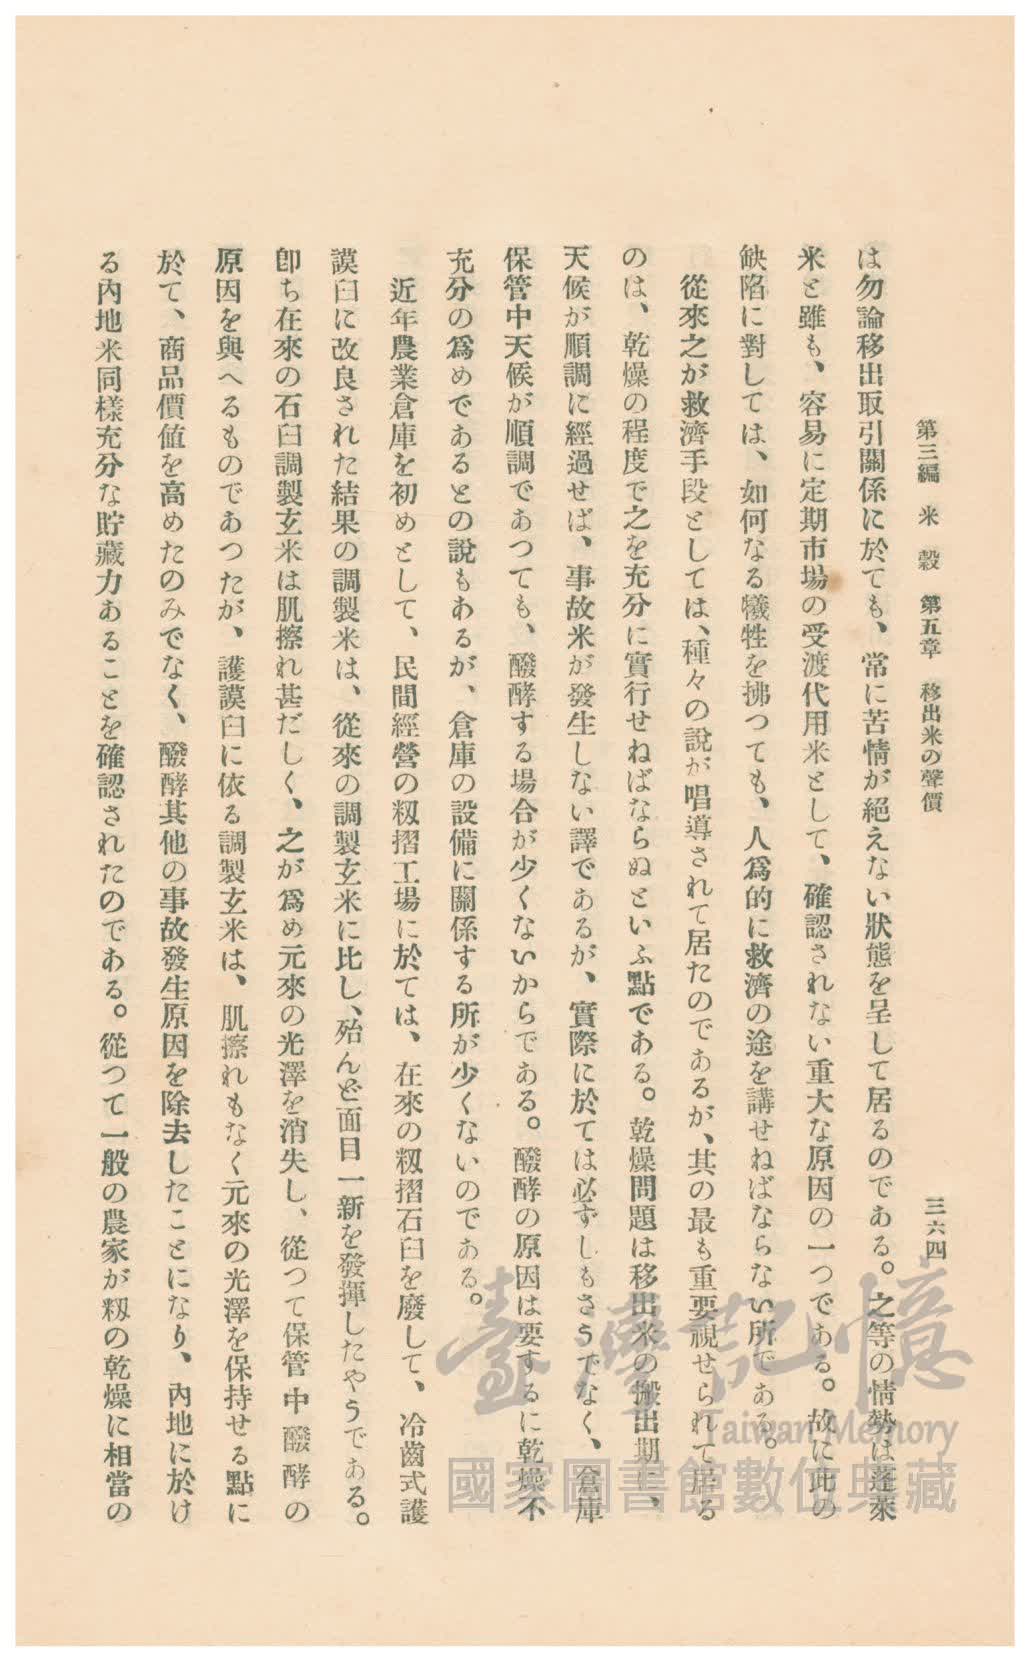 第三編　米　穀　第五章　移出米の聲價　三六四
は勿論移出取引關係に於ても、常に苦情が絕えない狀態を呈して居るのである。之等の情勢は蓬萊
米と雖も、容易に定期市場の受渡代用米として、確認されない重大な原因の一つである。故に此の
缺陷に對しては、如何なる犧牲を拂つても、人爲的に救濟の途を講せねばならない所である。
從來之が救濟手段としては、種々の說が唱導されて居たのであるが、其の最も重要視せられて居る
のは、乾燥の程度で之を充分に實行せねばならぬといふ點である。乾燥問題は移出米の搬出期に、
天候が順調に經過せば、事故米が發生しない譯であるが、實際に於ては必ずしもさうでなく、倉庫
保管中天候が順調であつても、醱酵する場合が少くないからである。醱酵の原因は要するに乾燥不
充分の爲めであるとの說もあるが、倉庫の設備に關係する所が少くないのである。
近年農業倉庫を初めとして、民間經營の籾摺工場に於ては、在來の籾摺石臼を廢して、冷齒式護
謨臼に改良された結果の調製米は、從來の調製玄米に比し、殆んど面目一新を發揮したやうである。
卽ち在來の石臼調製玄米は肌擦れ甚だしく、之が爲め元來の光澤を消失し、從つて保管中醱酵の
原因を與へるものであつたが、護謨臼に依る調製玄米は、肌擦れもなく元來の光澤を保持せる點に
於て、商品價値を高めたのみでなく、醱酵其他の事故發生原因を除去したことになり、內地に於け
る內地米同樣充分な貯藏力あることを確認されたのである。從つて一般の農家が籾の乾燥に相當の
臺灣記憶
Taiwan Memory
國家圖書館數位典藏